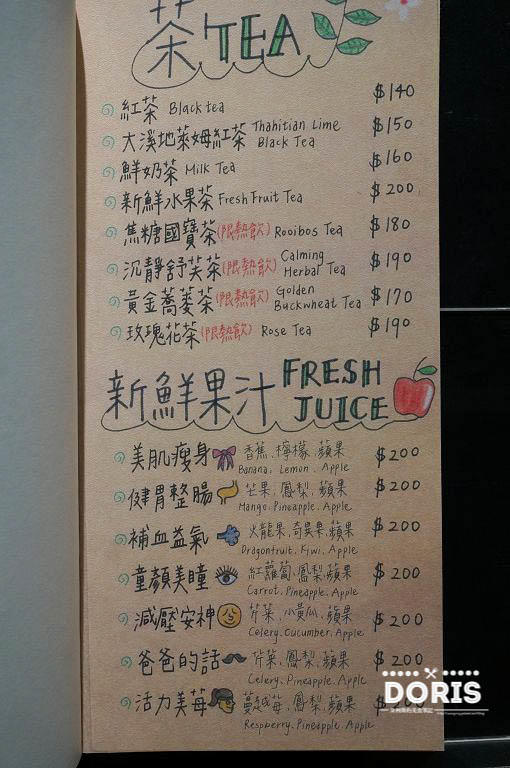 茶 TEA
紅茶 Black tea $140
大溪地萊姆紅茶 Thahitian Lime Black Tea $150
鮮奶茶 Milk Tea $160
新鮮水果茶 Fresh Fruit Tea $200
焦糖國寶茶(限熱飲) Rooibos Tea $180
沉靜舒芙茶(限熱飲) Calming Herbal Tea $190
黃金蕎麥茶(限熱飲) Golden Buckwheat Tea $170
玫瑰花茶(限熱飲) Rose Tea $190
新鮮果汁 FRESH JUICE
美肌瘦身 香蕉、檸檬、蘋果 $200
Banana, Lemon, Apple
健胃整腸 芒果、鳳梨、蘋果 $200
Mango, Pineapple, Apple
補血益氣 火龍果、奇異果、蘋果 $200
Dragonfruit, Kiwi, Apple
童顏美瞳 紅蘿蔔、鳳梨、蘋果 $200
Carrot, Pineapple, Apple
減壓安神 芹菜、小黃瓜、蘋果 $200
Celery, Cucumber, Apple
爸爸的話 芹菜、鳳梨、蘋果 $200
Celery, Pineapple, Apple
活力美莓 蔓越莓、鳳梨、蘋果
Respberry, Pineapple, Apple
DORIS